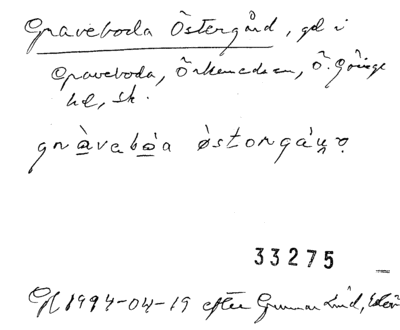 Graveboda Östergård, gd i
Graveboda, Örkeneds sn, Ö. Göinge
hd, Sk.
gràvebòa østorgáu̯ọ
33275
1994-04-19 efter Gunnar Lind,